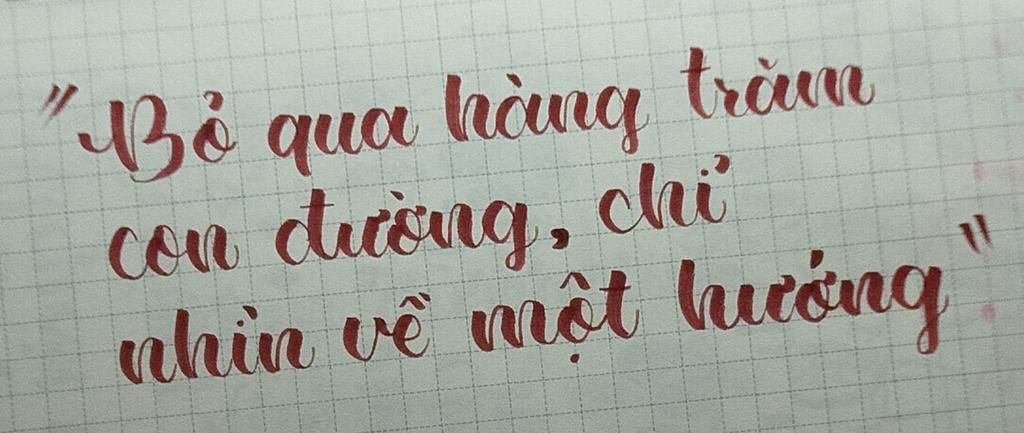 "Bỏ qua hàng trăm
con đường, chỉ
nhìn về một hướng"